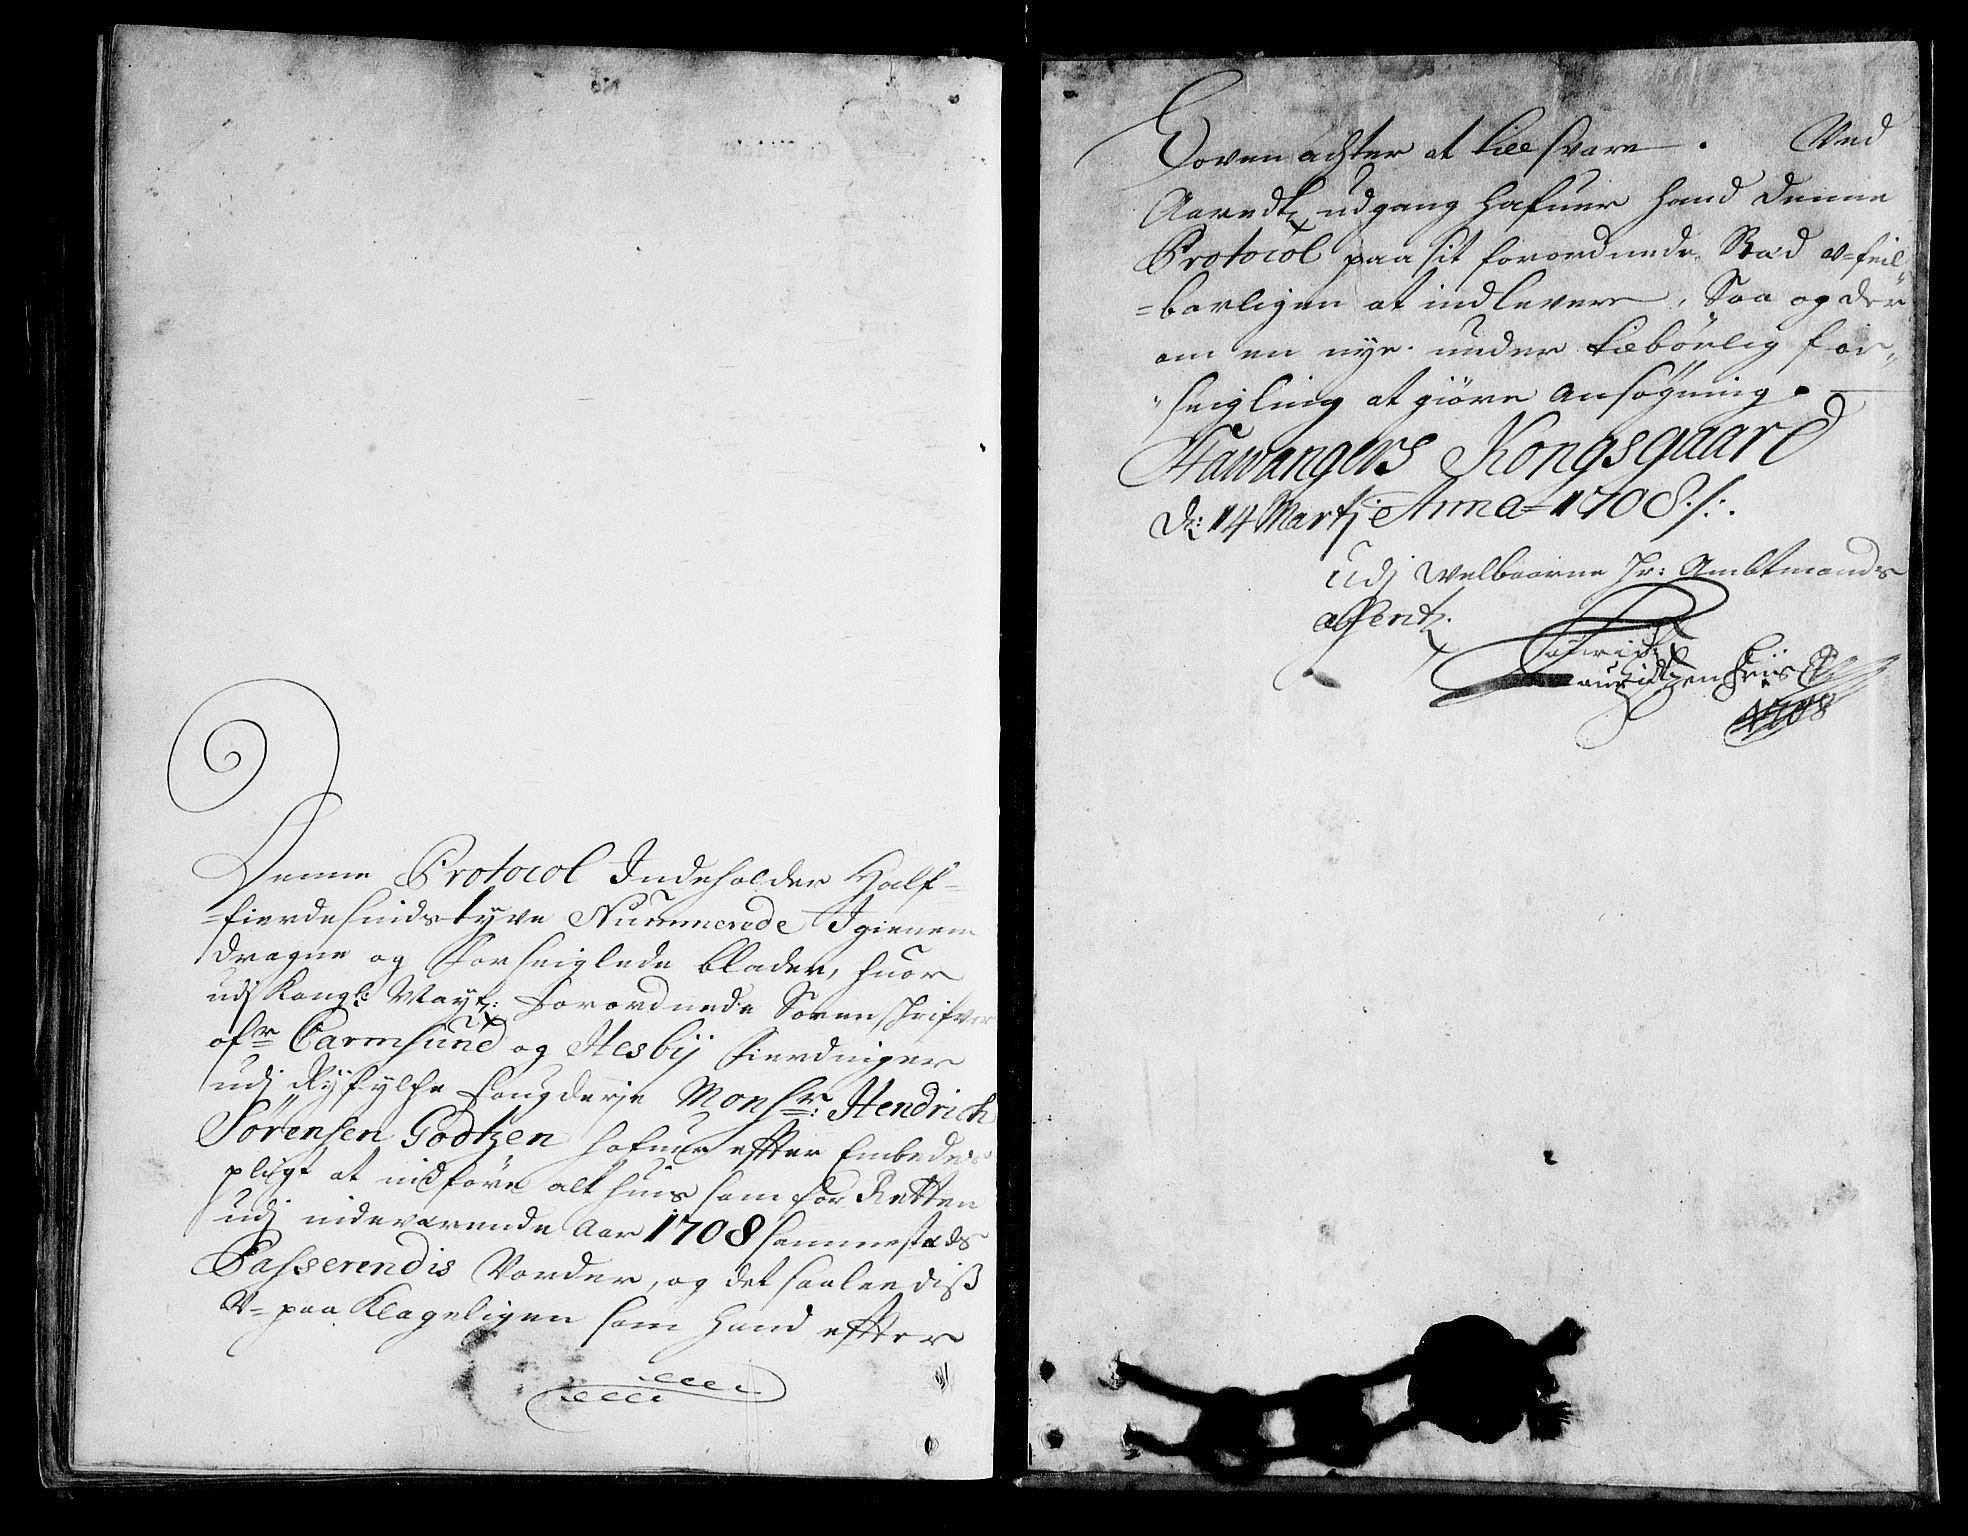 Denne Protocol Indeholder Half-
-fierdesindstyve Nummerede Igienem
dragne og forseiglede blader, huor
udj Kongl: Mayts: forordnede Sorenschrifver
ofr Carmsund og Hesbÿ fierdinger
udj Rÿfylche fougderje Monsr: Hendrich
Sørensen Godtzen hafuer effter Embedets
pligt at indføre alt huis som for Retten
udj indeværende Aar 1708 sammesteds
Passerendis Vorder, og det saaleediss
V-paa Klageligen som hand effter
Loven achter at tilsvare. Ved
Aaredts udgang hafuer hand denne
Protocol paa sit forordnede Stæd v-feil
-barligen at indlevere, Saa og der
om en nye under tilbørlig for„
„seigling at giøre Ansøgning.
Stawangers Kongsgaard
d: 14 Martj Anno 1708 ./.
Udj Welbaarne Hr: Ambtmands
absentz.
Lauridtzen Friis
1708